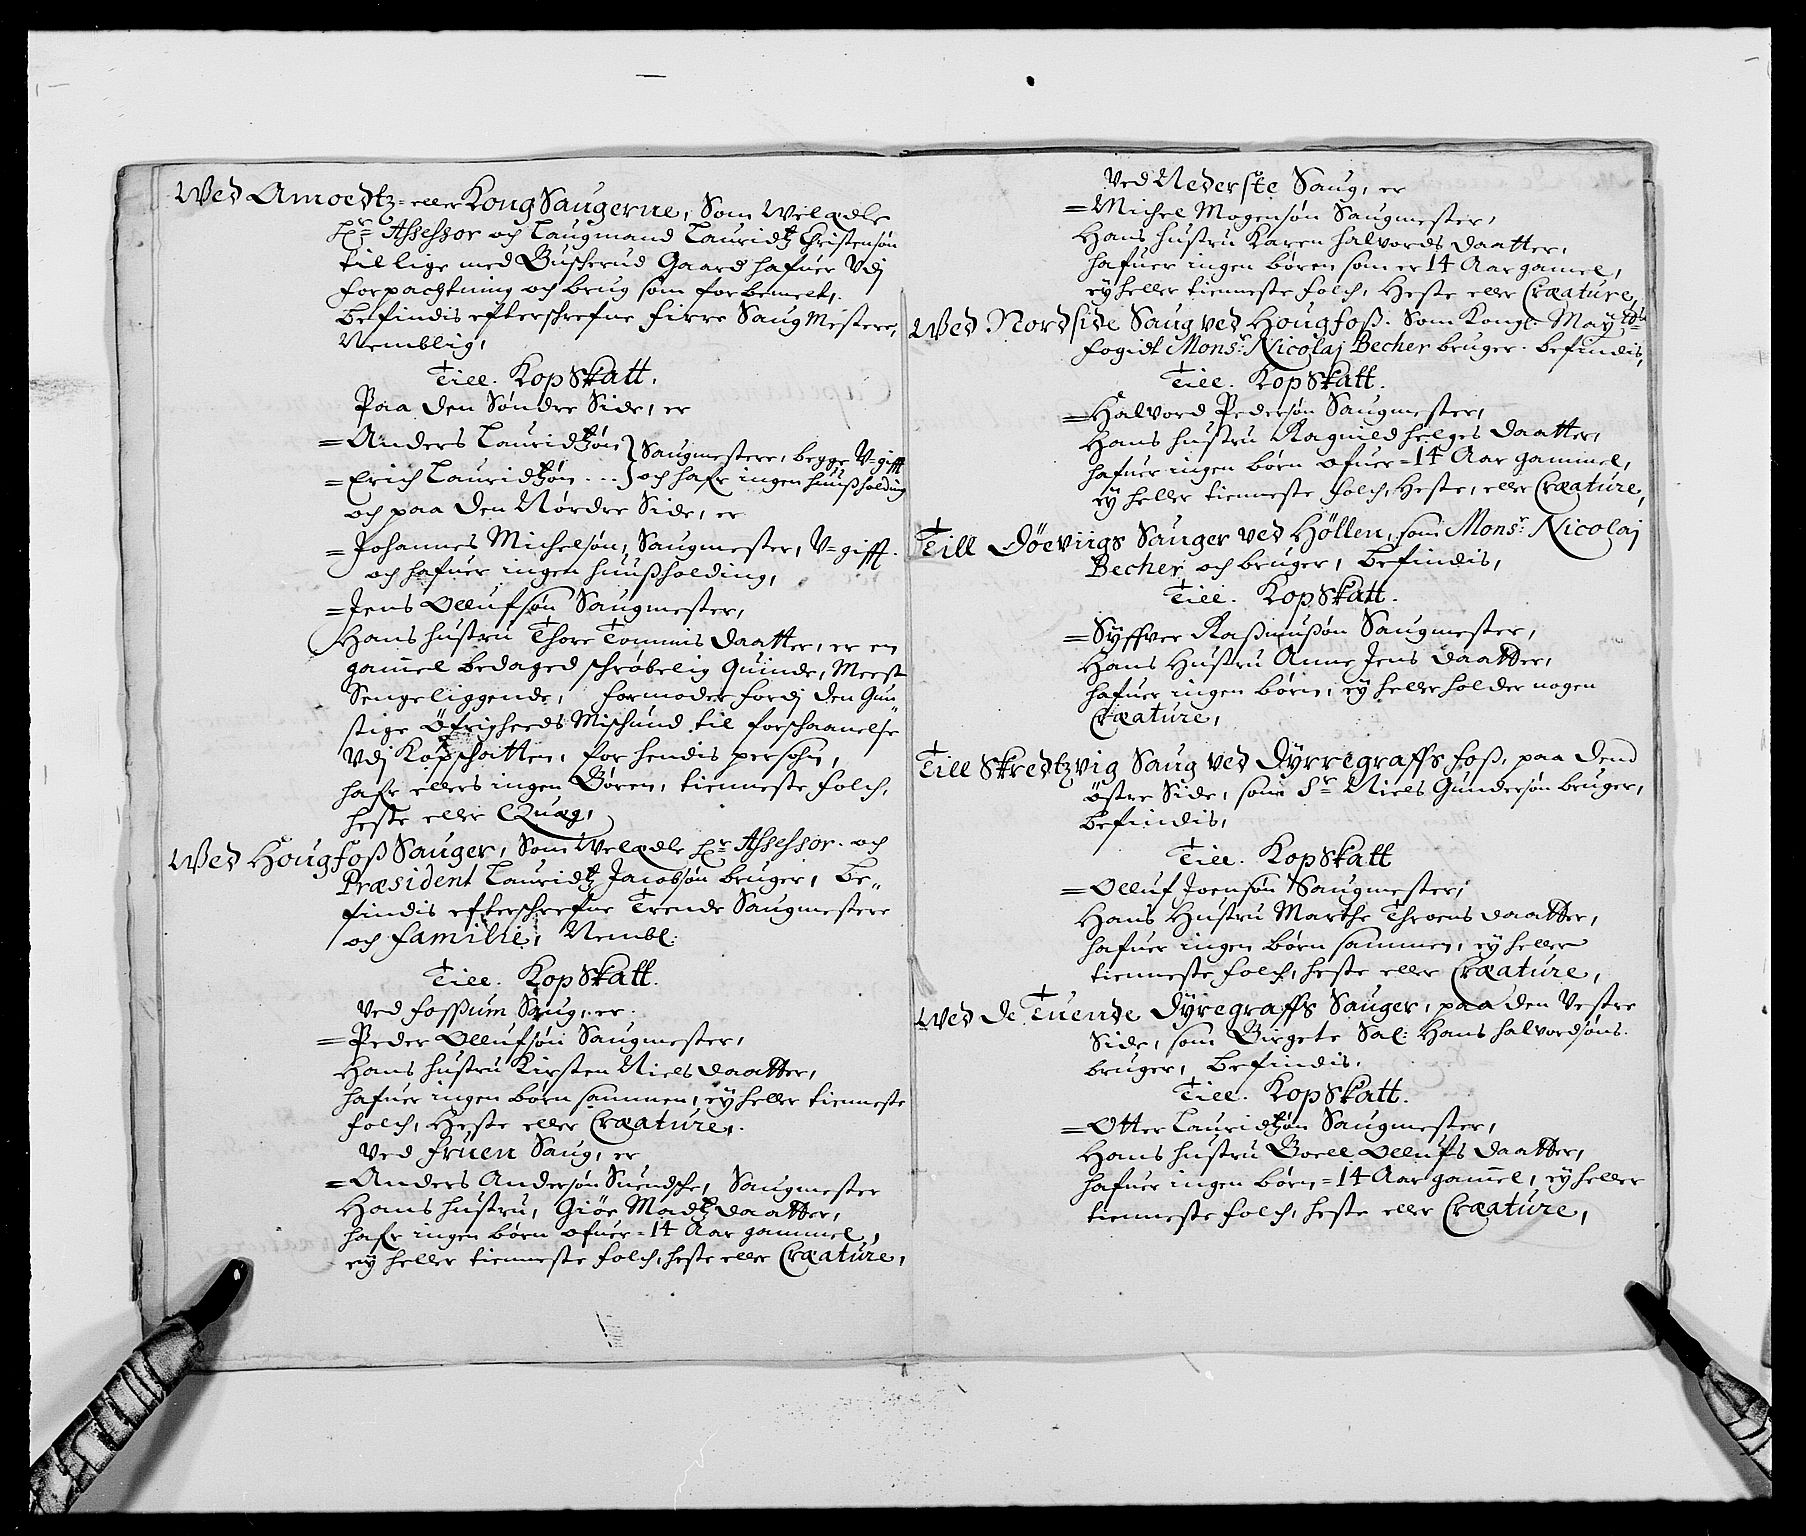 Wed Amoedtz- eller Kong Saugerne, Som Welædle
Hr: Assessor och Laugmand Lauridtz Christensøn
tillige med Buscherud Gaard hafuer Vdj
forpachtning och brug som forbemelt,
befindis efterschrefne firre Saug Mestere,
Nemblig,
Till. Kopskatt.
Paa den Søndre Side, er
=Anders Lauridtzøn } Saugmestere, begge V=gifft
=Erich Lauridtzøn ... } och hafr ingen huusholding
och paa den Nørdre Side, er
=Johannes Michelsøn, Saugmester, V=gifft.
och hafuer ingen huusholding,
=Jens Ollufsøn Saugmester,
Hans hustru Thore Tommis daatter, er en
gammel bedaged schrøbelig Quinde, Meest
Sengeliggende, formoder fordj den Gun„
stige Öfrigheeds Mischund til forschaanelse
Vdj Kopschatten, for hendis persohn,
hafr ellers ingen Børen, tienneste folch,
heste eller Quæg,
Wed Hougfoss Sauger, Som Welædle Hr: Assessor och
Præsident Lauridtz Jacobsøn bruger, be„
findis efterschrefne Trende Saugmestere
och familie, Nembl:
Till. Kopskatt.
Ved fossum Saug, er.
=Peder Ollufsøn Saugmester,
Hans hustru Kirsten Niels daatter,
hafuer ingen børn sammen, ey heller tienneste
folch, Heste eller Cræature,
Ved fruen Saug, er
=Anders Andersøn Suendsche, Saugmester
Hans hustru, Giöe Madtz daatter,
hafr ingen børn ofuer=14 Aar gammel,
ey heller tienneste folch, heste eller Cræature,
Ved Nederste Saug, er
=Michel Mogensøn Saugmester,
Hans hustru Karen halvords daatter,
hafuer ingen børen som er 14 Aar gamel,
ey heller tienneste folch, Heste eller Cræature,
Wed Nordside Saug ved Hougfoss. Som Kongl: May:
fogidt Monsr: Nicolaj Becher bruger. befindis,
Till. Kopskatt.
=Halvord Pedersøn Saugmester,
Hans hustru Ragnild helges daatter,
hafuer ingen børn ofuer=14 Aar gammel,
ey heller tienneste folch, Heste, eller Cræature,
Till Döeviigs Sauger ved Höllen, som Monsr: Nicolaj
Becher, och bruger, befindis,
Till. Kopskatt.
=Syffver Rassmussøn Saugmester,
Hans Hustru Anne Jens daatter,
hafuer ingen børn, ey heller holder nogen
Cræature,
Till Skredtzvig Saug ved Dyrregraffs foss, paa dend
Östre Side, som Sr Niels Gundersøn bruger,
befindis,
Till. Kopskatt
=Olluf Joensøn Saugmester,
Hans Hustru Marthe Throens daatter,
hafuer ingen børn sammen, ey heller
tienneste folch, heste eller Cræature,
Wed de Tuende Dyregraffs Sauger, paa den Vestre
Side, som Birgete Sal: Hans halvordsøns
bruger, befindis,
Till. Kopskatt.
=Otter Lauridtzøn Saugmester,
Hans hustru Boell Ollufs daatter,
hafuer ingen børn=14 Aar gamel, ey heller
tienneste folch, heste eller Cræature,